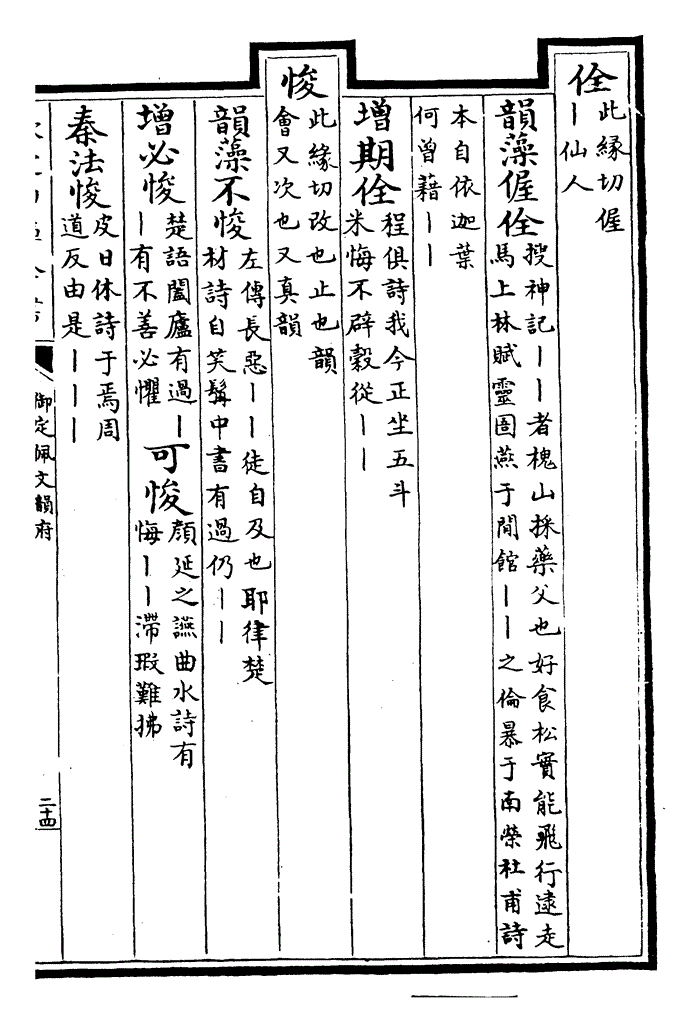 佺此縁切偓
｜仙人
韻藻偓佺搜神記｜｜者槐山採藥父也好食松實能飛行逮走
馬上林賦靈圄燕于閒館｜｜之倫暴于南榮杜甫詩
本自依迦葉
何曾藉｜｜
増期佺程俱詩我今正坐五斗
米悔不辟穀從｜｜
悛此緣切改也止也韻
會又次也又真韻
韻藻不悛左傳長惡｜｜徒自及也耶律楚
材詩自笑髯中書有過仍｜｜
增必悛楚語闔廬有過｜
｜有不善必懼
可悛顔延之讌曲水詩有
悔｜｜滯瑕難拂
秦法悛皮日休詩于焉周
道反由是｜｜｜
御定佩文韻府
二十四